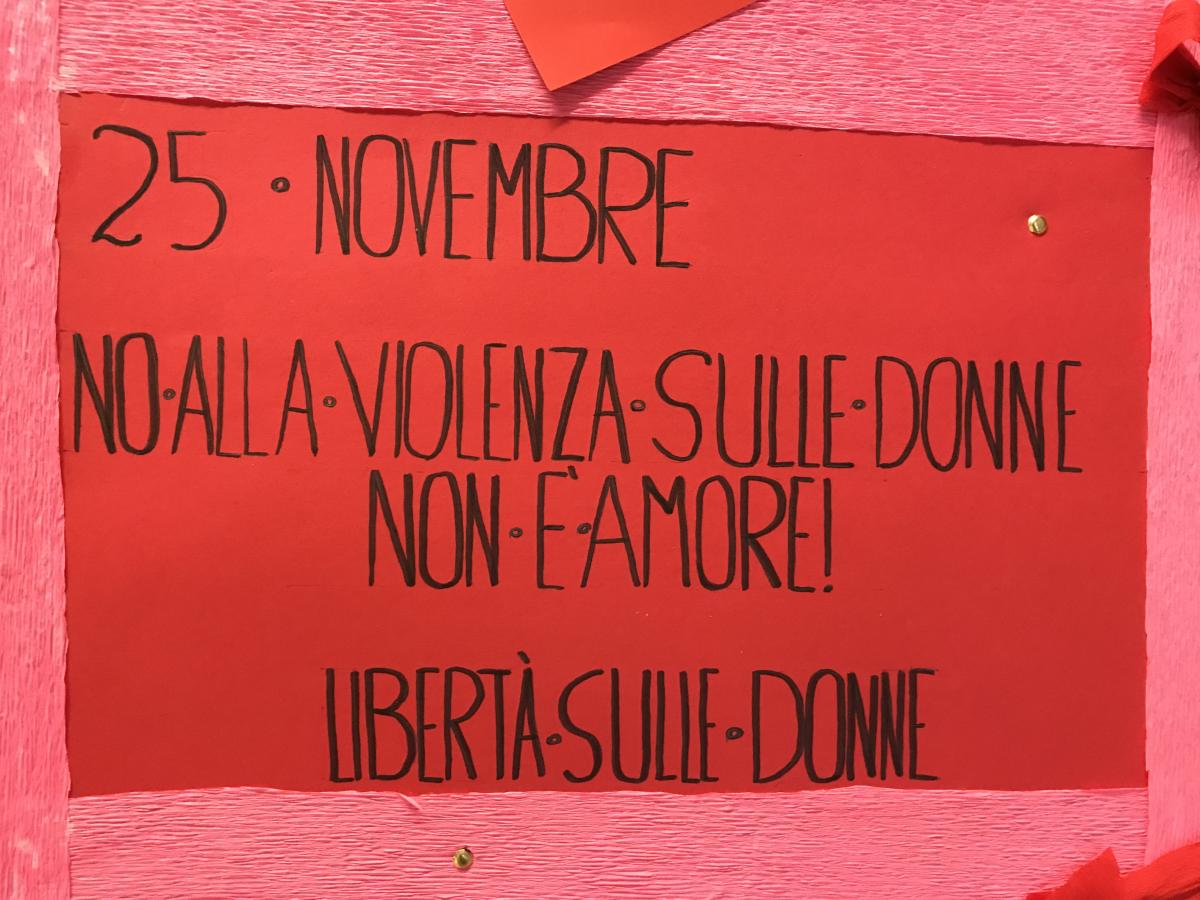 25 • NOVEMBRE
NO•ALLA•VIOLENZA•SULLE•DONNE
NON•È•AMORE!
LIBERTÀ•SULLE•DONNE